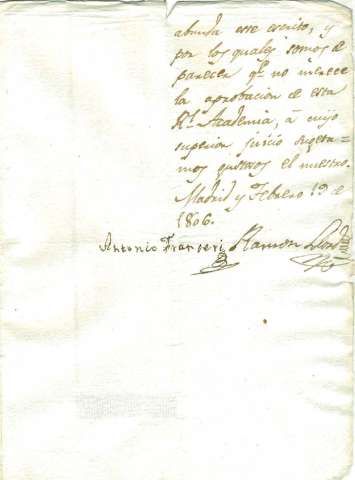 abunda este escrito, y
por los quales somos de
parecer qe. no merece
la aprobacion de esta
Rl. Academia, á cuyo
superior juicio sugeta=
mos gustosos el nuestro.
Madrid y Febrero 19 de
1806.
Antonio Franseri Ramon